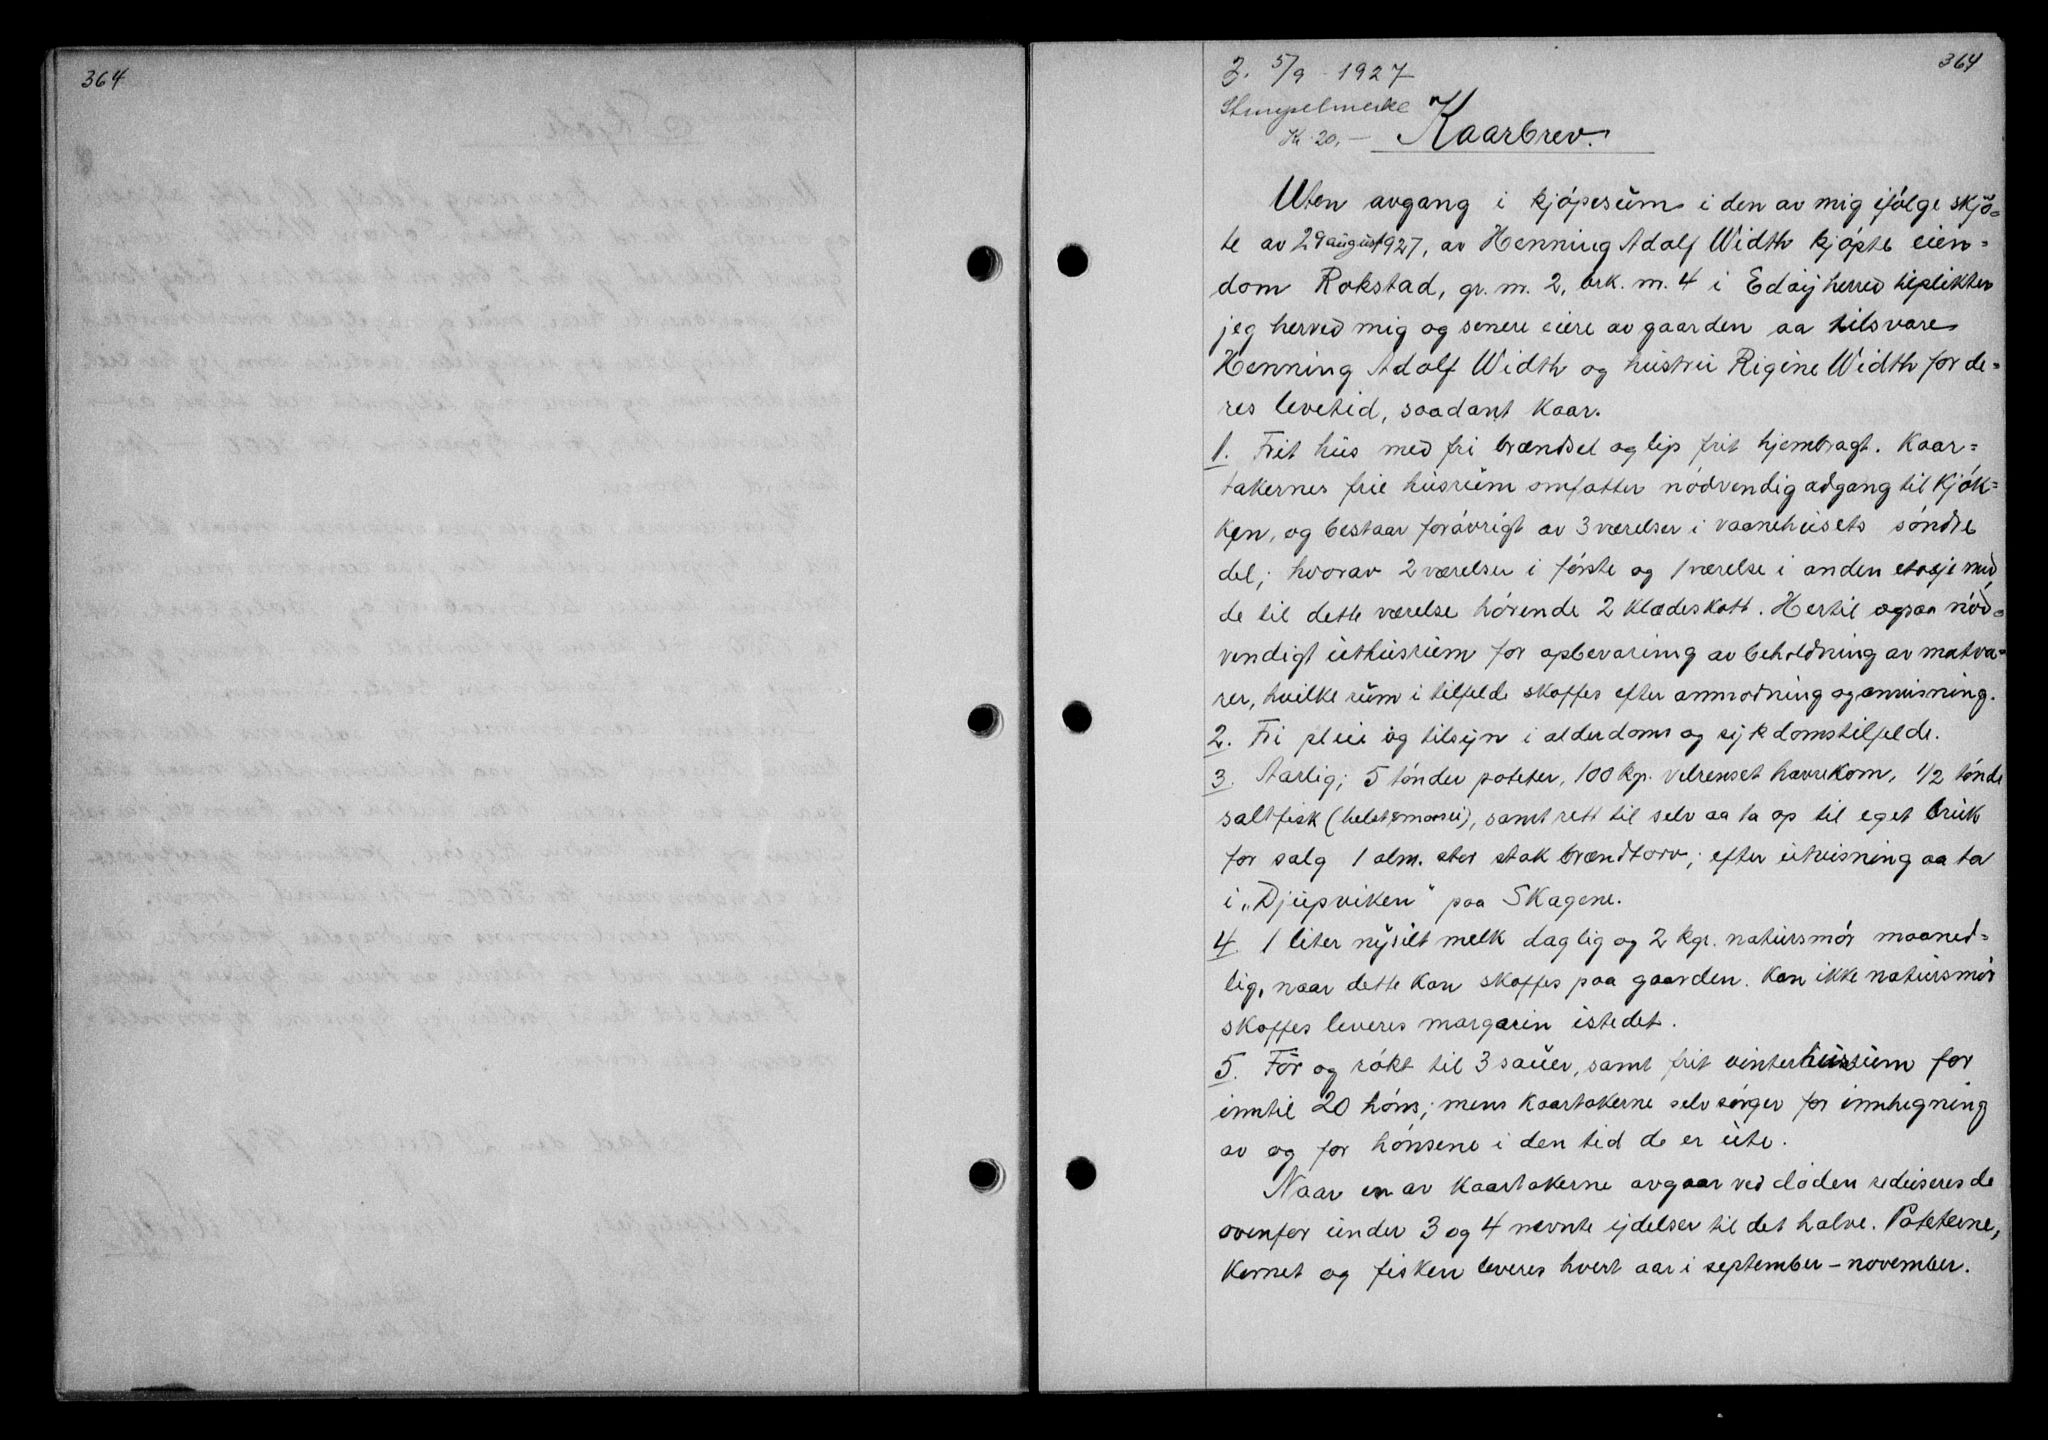 364
364
3. 5/9 - 1927
Stempelmerke
Kr. 20,-
Kaarbrev.
Uten avgang i kjøpesum i den av mig ifølge skjø-
te av 29 august 1927, av Henning Adolf Width kjøpte eien-
dom Rokstad, gr. nr. 2, brk. nr. 4 i Edøy herred tilplikter
jeg herved mig og senere eiere av gaarden aa tilsvare
Henning Adolf Width og hustru Rigine Width for de-
res levetid, saadant kaar.
1. Frit hus med fri brændsel og lys frit hjembragt. Kaar-
takernes frie husrum omfatter nødvendig adgang til kjøk-
ken, og bestaar forøvrigt av 3 værelser i vaanehusets søndre
del; hvorav 2 værelser i første og 1 værelse i anden etasje med
de til dette værelse hørende 2 klædeskott. Hertil ogsaa nød-
vendigt uthusrum for opbevaring av beholdning av matva-
rer, hvilke rum i tilfelde skaffes efter anmodning og anvisning.
2. Fri pleie og tilsyn i alderdoms og sykdomstilfelde.
3. Aarlig; 5 tønder poteter, 100 kgr. velrenset havrekorn, 1/2 tønde
saltfisk (helst smaasei), samt rett til selv aa ta op til eget bruk
for salg 1 alm. stor stak brændtorv; efter utvisning aa ta
i „Djupviken" paa Skagene.
4. 1 liter nysilt melk daglig og 2 kgr. natursmør maaned-
lig, naar dette kan skaffes paa gaarden. Kan ikke natursmør
skaffes leveres margarin istedet.
5. Fôr og røkt til 3 sauer, samt frit vinterhusrum for
inntil 20 høns; mens kaartakerne selv sørger for innhegning
av og for hønsene i den tid de er ute.
Naar en av kaartakerne avgaar ved døden reduseres de
ovenfor under 3 og 4 nevnte ydelser til det halve. Poteterne,
kornet og fisken leveres hvert aar i september - november.